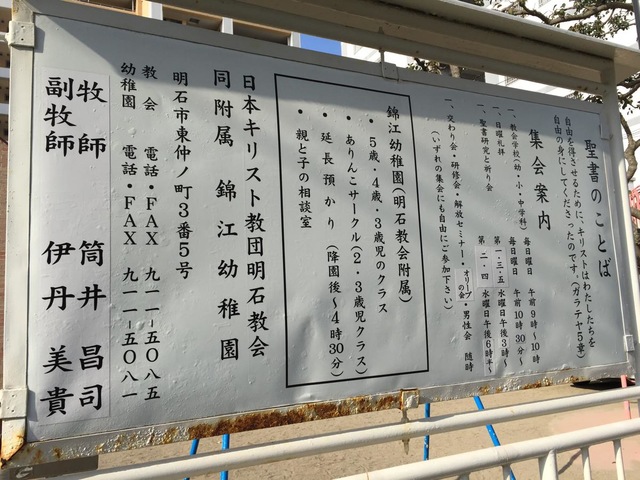 聖書のことば
自由を得させるために、キリストはわたしたちを
自由の身にしてくださったのです。(ガラテヤ5章)
集会案内
一、教会学校(幼・小・中学科) 毎日曜日 午前9時〜10時
一、日曜礼拝 毎日曜日 午前10時30分〜
一、聖書研究と祈り会 第一・三・五 水曜日午後3時〜
第二・四 水曜日午後6時半〜
一、交わり会・研修会・解放セミナー・オリーブの会・男性会 随時
(いずれの集会にも自由にご参加下さい)
錦江幼稚園(明石教会附属)
・5歳・4歳・3歳児のクラス
・ありんこサークル(2・3歳児クラス)
・延長預かり(降園後〜4時30分)
・親と子の相談室
日本キリスト教団明石教会
同附属 錦江幼稚園
明石市東仲ノ町3番5号
教会 電話・FAX 九一一-五〇八五
幼稚園 電話・FAX 九一一-五〇八一
牧師 筒井昌司
副牧師 伊丹美貴